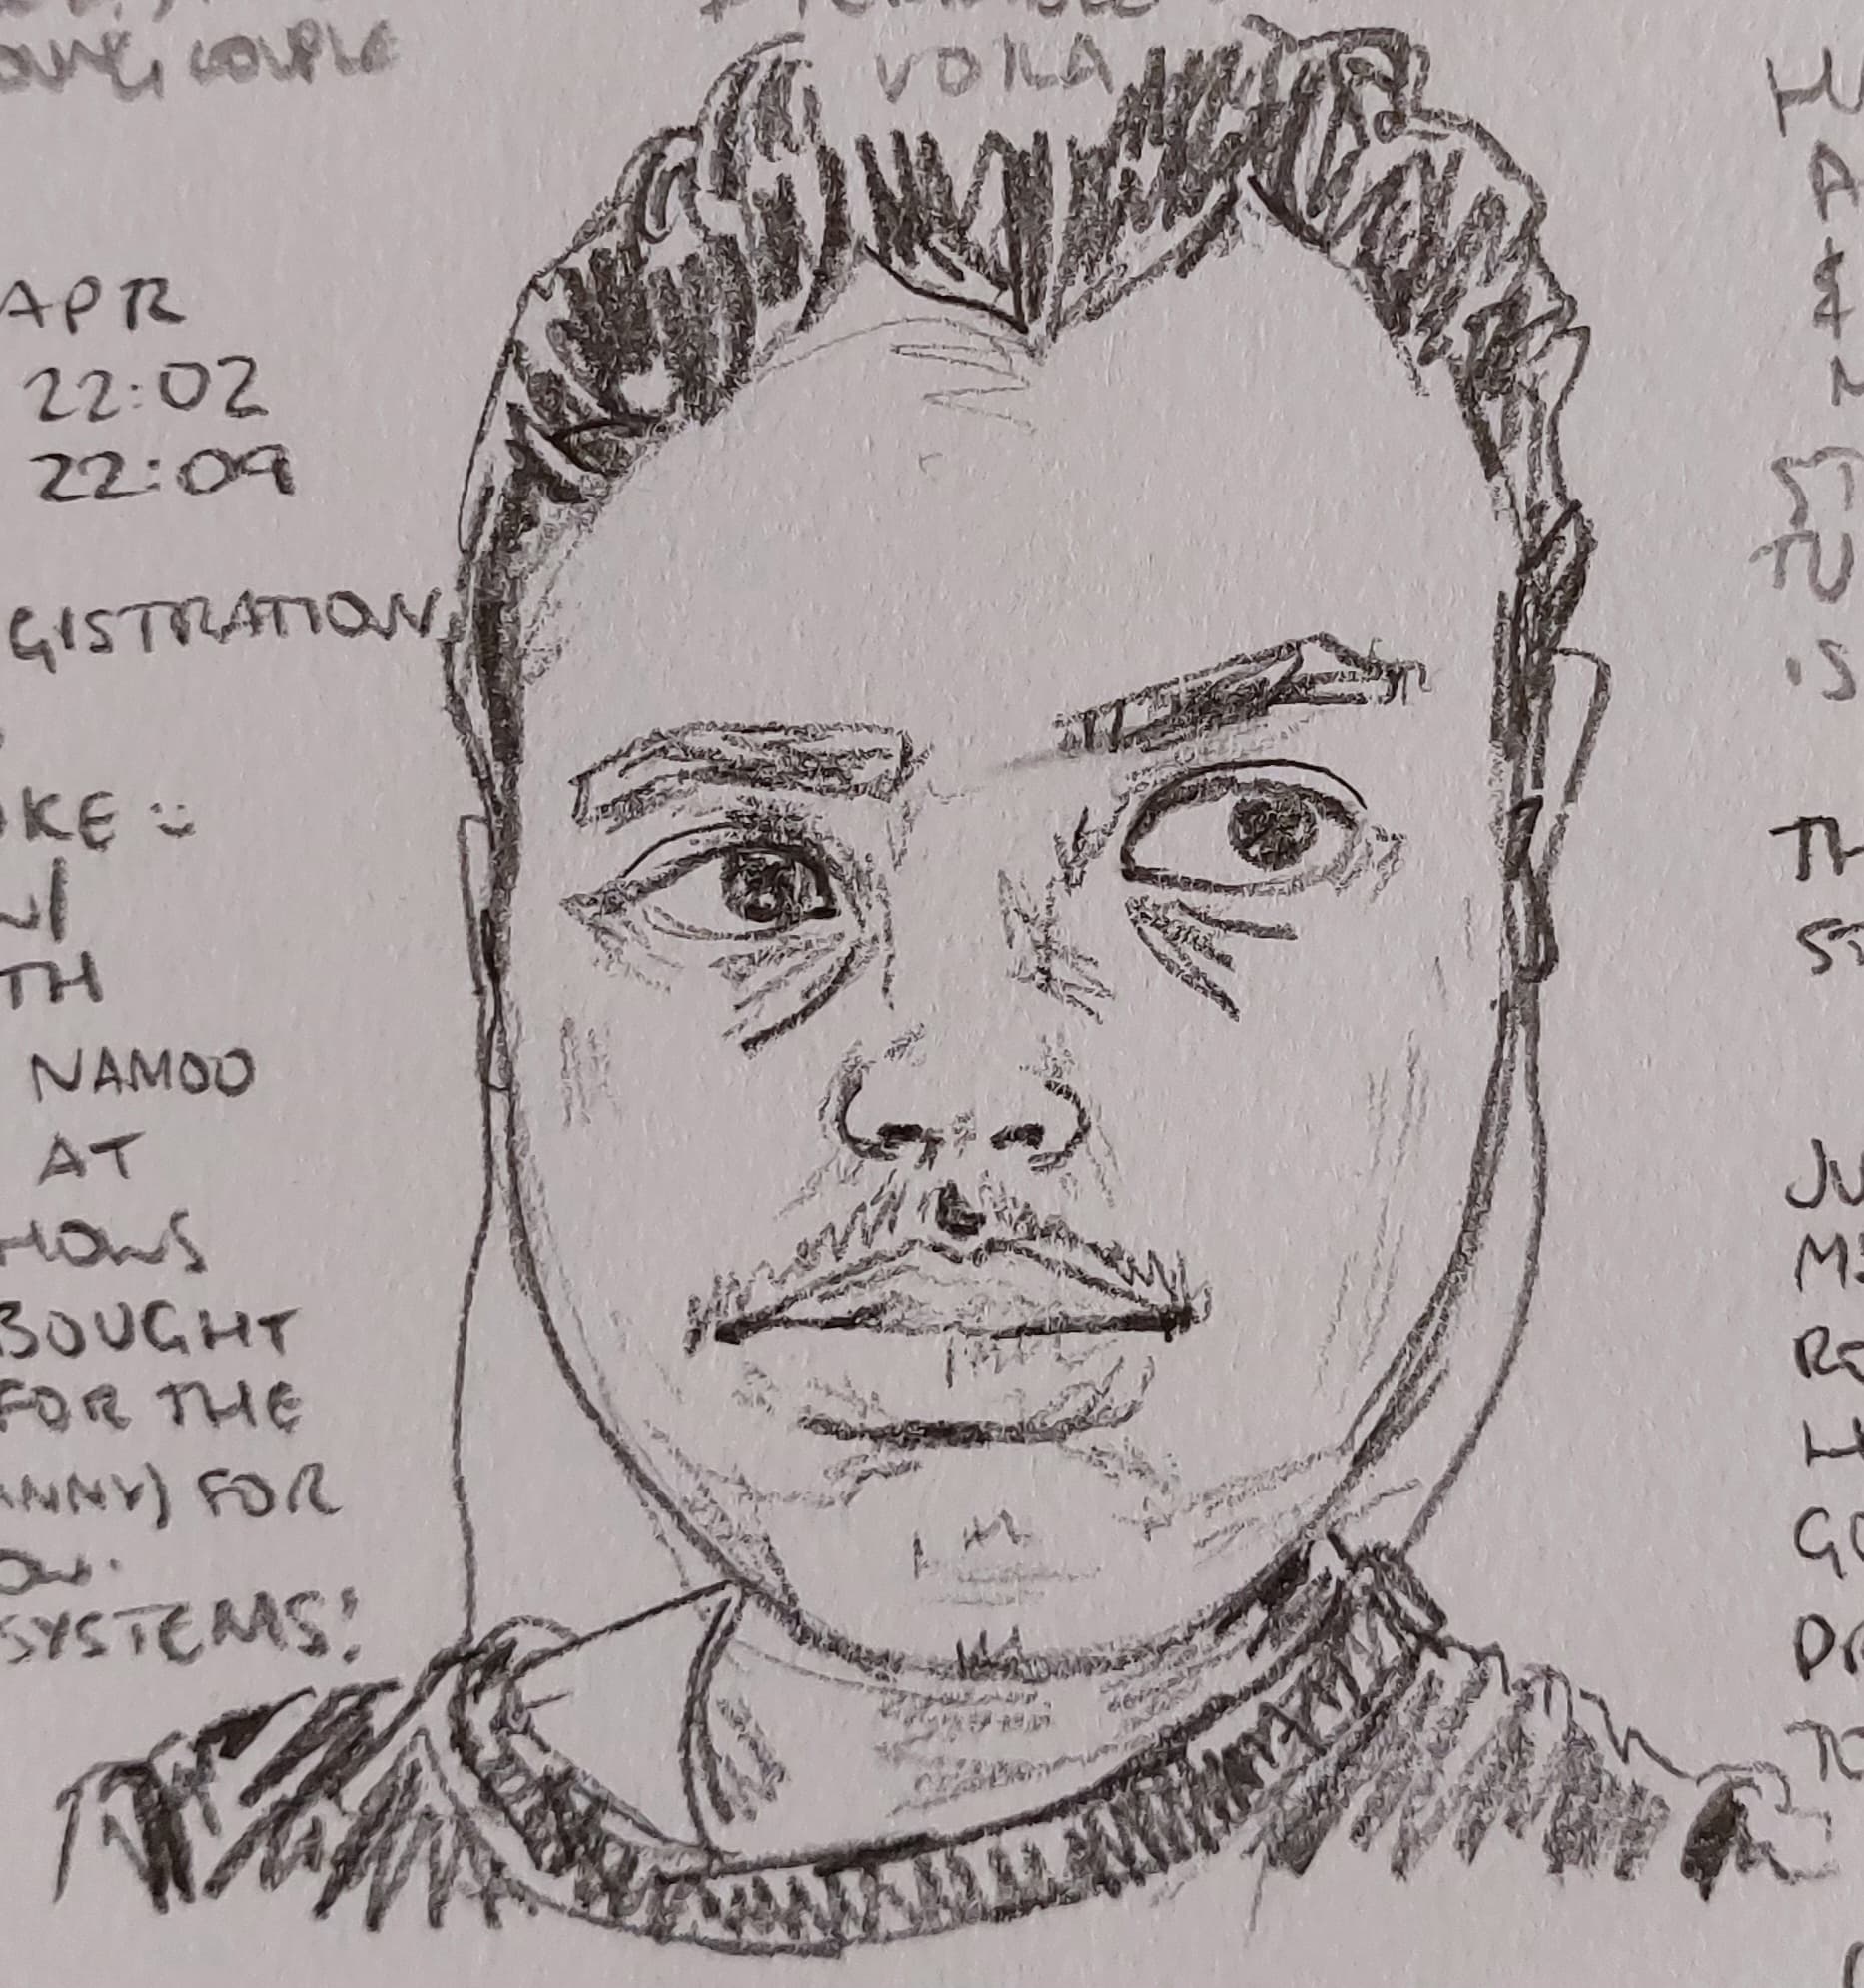 COUPLE
VOILA
APR
22:02
22:09
GISTRATION
OKE :)
W/
TH
NAMOO
AT
HOWS
BOUGHT
FOR THE
ANNY) FOR
OW.
SYSTEMS!
A
&
ST
TU
'S
TH
ST
JU
MY
RE
H
GO
DR
TO